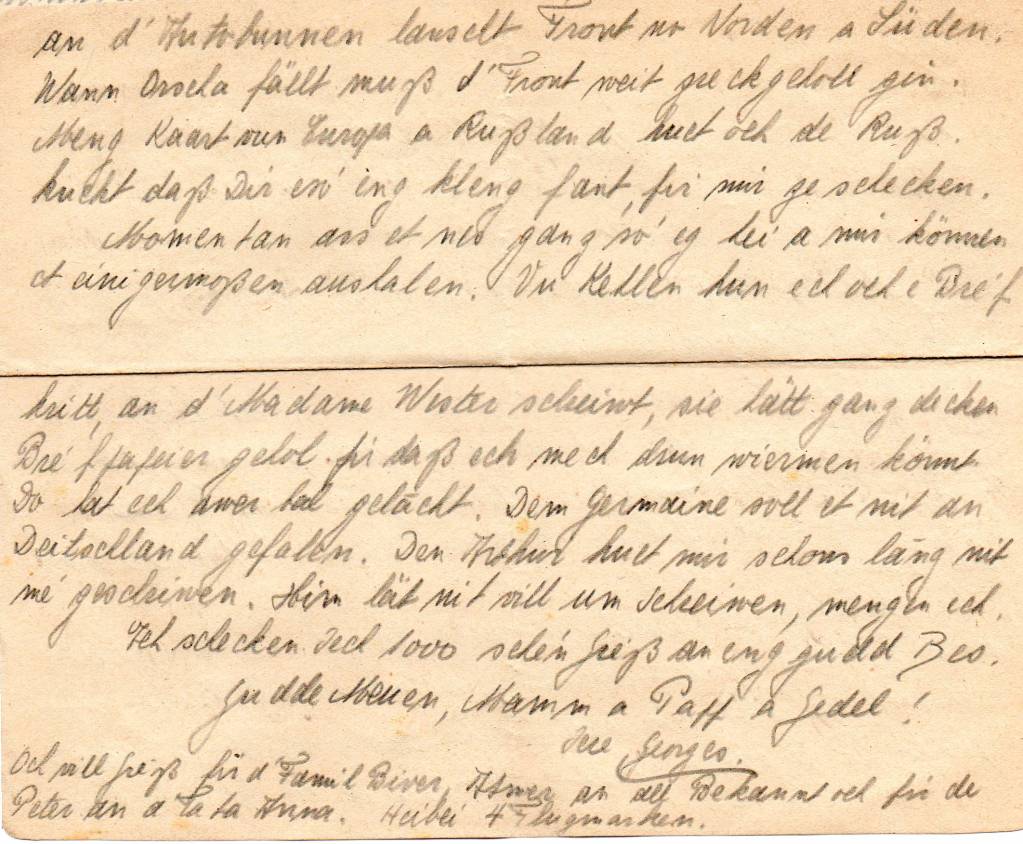 an d' Autobunnen lauselt Front no Norden a Süden.
Wann Orscha fällt muß d' Front weit zreckgeholl gin.
Meng Kaart vun Europa a Rußland huet och de Ruß.
kuckt daß Dir eso' eng kleng fant, fir mir ze schecken.
Momentan ass et net ganz so' eg hei a mir können
et einigermoßen aushalen. Vu Ketten hun ech och e Bre'f
kritt, an d' Madame Wester scheint, sie hätt ganz decken
Bre'fpapeier geholl fir daß ech mech drun wiermen könnt.
Do hat ech awer hal gelacht. Dem Germaine soll et nit an
Deitschland gefalen. Den Arthur huet mir schons läng nit
me' geschriwen. Him läit nit vill um schreiwen, mengen ech.
Ech schecken Iech 1000 sche'n Gre'ß an eng gudd Bes.
Gudde Meuen, Mamm a Papp a Gedel!
Iere Georges.
Och vill Gre'ß fir d' Famil Biver, an all Bekannt och fir de
Peter an d' Tata Anna. Heibei 4 Flugmarken.